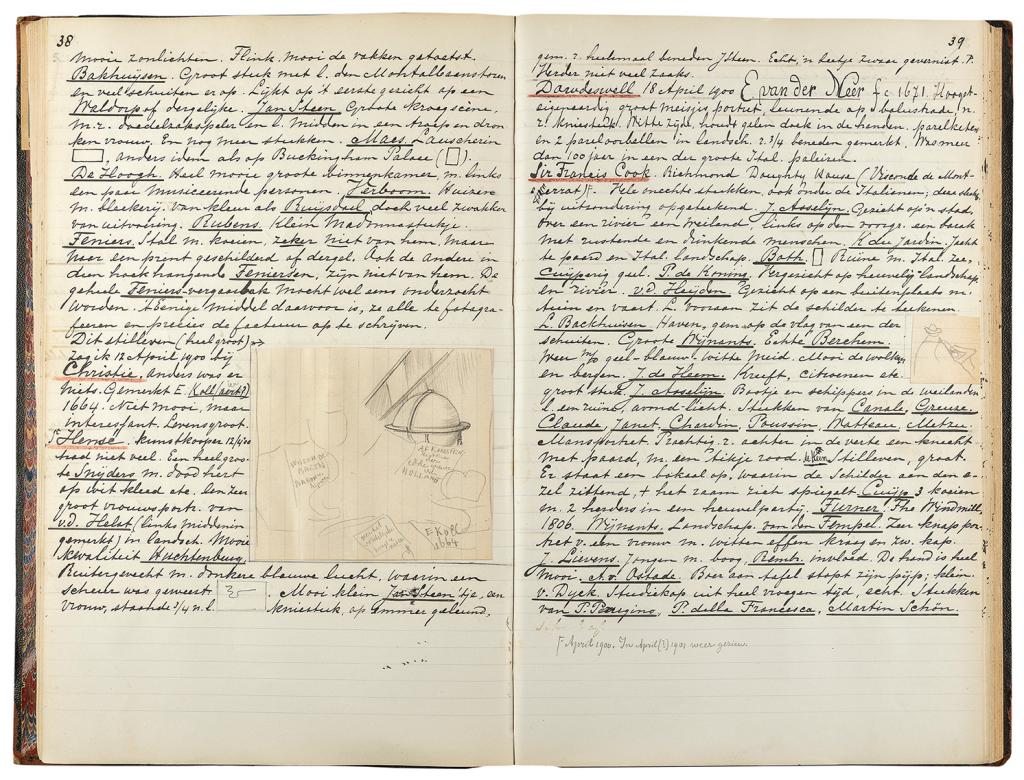 38
mooie zonlichten. Flink, mooi de vakken getoetst.
Bakhuijsen. Groot stuk met l. den Montalbaanstoren
en veel schuiten er op. Lijkt op 't eerste gezicht op een
Weldorp of dergelijke. Jan Steen. Groote kroegscène,
m. r. doedelzakspeler en l. midden in een troep en dron
ken vrouw. En nog meer stukken. Maes. Lauscherin
, anders idem als op Buckingham Palace ( ).
De Hoogh. Heel mooie groote binnenkamer, m. links
een paar musiceerende personen. Verboom. Huizen
m. bleekerij. van kleur als Ruijsdael doch veel zwakker
van uitvoering. Rubens. Klein Madonnastukje.
Teniers. Stal m. koeien, zeker niet van hem, maar
naar een prent geschilderd of dergel. Ook de andere in
dien hoek hangende Teniersen, zijn niet van hem. De
geheele Teniers-vergaarbak mocht wel eens onderzocht
worden. 't Eenige middel daarvoor is, ze alle te fotogra-
feeren en precies de factuur op te schrijven.
Dit stilleven (heel groot)
zag ik 12 April 1900 bij
Christie, anders was er
niets. Gemerkt E. Koll (aert?)
1664. Niet mooi, maar
interessant. Levensgroot.
Hense. kunstkooper 12/4 00
had niet veel. Een heel groo-
te Snijders m. dood hert
op wit kleed etc. Een zeer
groot vrouwsportr. van
v.d. Helst (links midden in
gemerkt) in landsch. Mooie
kwaliteit Huchtenburg,
Ruitergevecht m. donkere blauwe lucht, waarin een
scheur was geweest. Mooi klein Jan Steen'tje, een
vrouw, staande 3/4 n. l. kniestuk op emmer geleund,
HOLLAND
E. Koll
1664
39
gem. r. heelemaal beneden JSteen. Echt, 'n beetje zwaar gevernist. ?.
Verder niet veel zaaks.
Dowdeswell 18 April 1900 E. van der Neer fc 1671. Hoogst
eigenaardig groot meisjesportret, leunende op balustrade, n.
r. kniestuk. Witte zijde, houdt gelen doek in de handen. parelketen
en 2 pareloorbellen in landsch. r. 3/4 beneden gemerkt. Was meer
dan 100 jaar in een der groote Ital. paleizen.
Sir Francis Cook Richmond Doughty House (Visconde de Mont-
serrat). Vele onechte stukken, ook onder de Italienen; deze slechts
bij uitzondering opgeteekend. J. Asselijn. Gezicht op 'n stad,
over een rivier een weiland, links op den voorgr. een barak
met rustende en drinkende menschen. K. du Jardin. Jacht
te paard en Ital. landschap. Both. Ruïne m. Ital. zee,
Cuijperig geel. P. de Koning. Vergezicht op heuvelig landschap
en rivier. v.d. Heijden Gezicht op een buitenplaats m.
tuin en vaart. L. vooraan zit de schilder te teekenen.
L. Backhuisen Haven, gem. op de vlag van een der
schuiten. Groote Wijnants. Echte Berchem.
Weer geel-blauw-witte meid. Mooi de wolken
en bergen. J. de Heem. Kreeft, citroenen etc.
groot stuk. J. Asselijn Bootje en schippers in de weilanden
l. een ruïne, avond-licht. Stukken van Canale, Greuze,
Claude, Janet, Chardin, Poussin, Watteau, Metzu.
Mansportret Prachtig. r. achter in de verte een knecht
met paard, m. een tikje rood. de Heem Stilleven, groot.
Er staat een bokaal op, waarin de Schilder aan den e-
zel zittend, + het raam zich spiegelt. Cuijp 3 koeien
m. 2 herders in een heuvelpartij. Turner, The Windmill
1806. Wijnants. Landschap. van den Tempel. Zeer knap por-
tret v. een vrouw m. witten effen kraag en zw. kap.
J. Lievens. Jongen m. boog, Rembr. invloed. De hand is heel
mooi. A. v. Ostade. Boer aan tafel stopt zijn pijp; klein.
v. Dyck. Studiekop uit heel vroegen tijd, echt. Stukken
van P. Perugino, P. della Francesca, Martin Schön.
April 1900. In April(?) 1901 weer gezien.